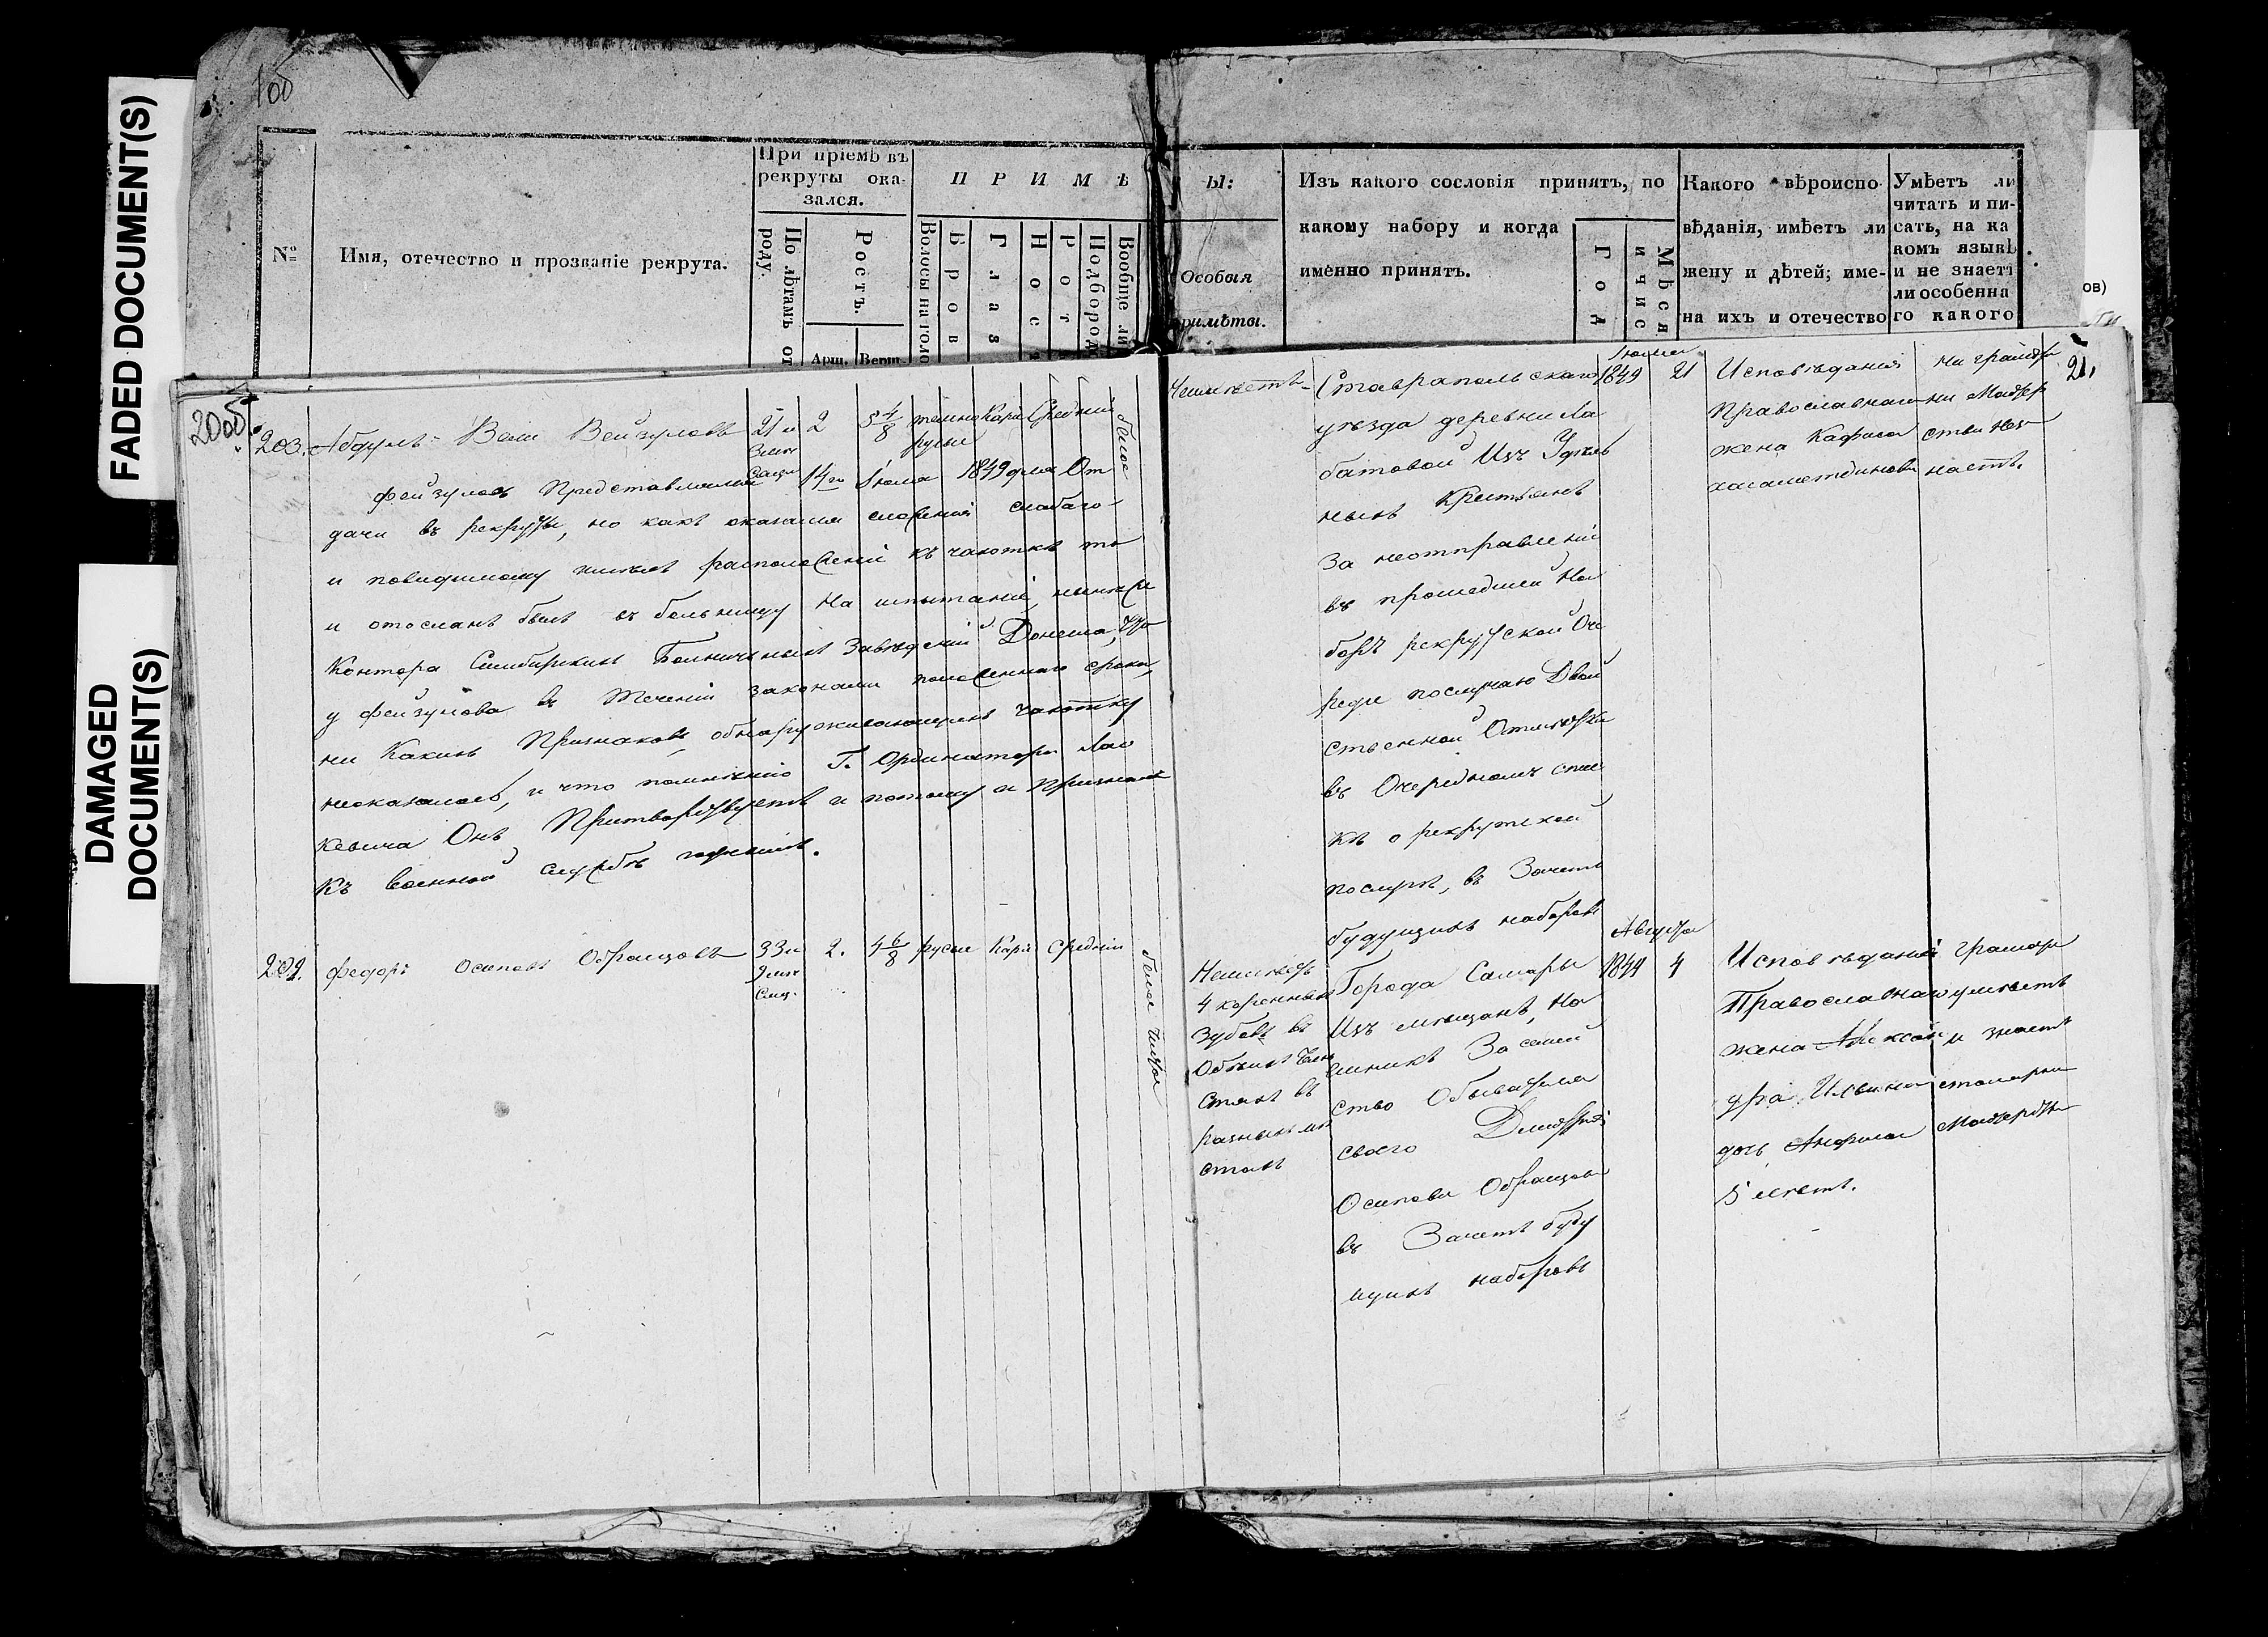 FADED DOCUMENT(S)
DAMAGED
DOCUMENT(S)
1об
№
Имя, отечество и прозваніе рекрута.
При пріемѣ въ
рекруты ока-
зался.
По лѣтамъ от
роду.
Ростъ.
Арш.
Верш.
П Р И М Ѣ
Волосы на голо
Бров
Глаз
Нос
Рот
Подбород
Вообще ли
Ы:
Особыя
римѣты.
Изъ какого сословія принятъ, по
какому набору и когда
именно принятъ.
Год
Мѣся
и чис
Какого вѣроиспо-
вѣданія, имѣетъ ли
жену и дѣтей; име-
на ихъ и отечество
Умѣетъ ли
читать и пи-
сать, на ка
комъ языкѣ
и не знаетъ
ли особенна
го какого
ов)
20об
203. Абдулъ= Вали Вейзуловъ 21 и 2 5 4/8 темно Карі Средній белое
русые
Фейзуловъ Представленъ 14го Іюля 1849 для От
дачи въ рекруты, но какъ оказался сложенія слабаго
и повидимому имѣлъ расположеніе къ чахоткѣ то
и отосланъ былъ въ больницу на испытаніе, нынѣ же
Контора Симбирскихъ Больничныхъ Заведеній Донесла, что
у Фейзулова въ теченіи законами положеннаго срока,
ни какихъ Признаковъ, обнаруживающихъ чахотку
неоказалось, и что помнѣнію Г. Ординатора Лас
кевича Онъ Притворствуетъ и потому и Признанъ
Къ военной службѣ годнымъ.
Неимѣетъ
Ставропольскаго
уѣзда деревни Ла
батовой Изъ Удѣль
ныхъ Крестьянъ
За неотправленіи
въ прошедшей На
боръ рекрутской Оче
реди послучаю Двой
ственной Отмѣтки
въ Очередномъ спис
кѣ о рекрутской
послугѣ, въ Зачетъ
будущихъ наборовъ
Іюля
1849 21
Исповѣданія
Православнаго
жена Кафиса
Хисаметдинова
ни грамоты
ни Мастер
ства незн
наетъ.
21.
204. Федоръ Осиповъ Образцовъ 33 и 2. 4 6/8 русые Карі средній белое чисто
Неимѣетъ
4 коренныхъ
Зубовъ въ
Обѣихъ Челю
стяхъ въ
разныхъ мѣ
стахъ
Города Самары
Изъ мѣщанъ, На
емникъ За семей
ство Обывателя
своего Дмитрія
Осипова Образцова
въ Зачетъ буду
щихъ наборовъ
Августа
1849 4
Исповѣданія
Православнаго
жена Алексан
дра Ильина
дочь Анфиса
5 лѣтъ.
грамоте
умѣетъ
и знаетъ
столярн
Мастерство